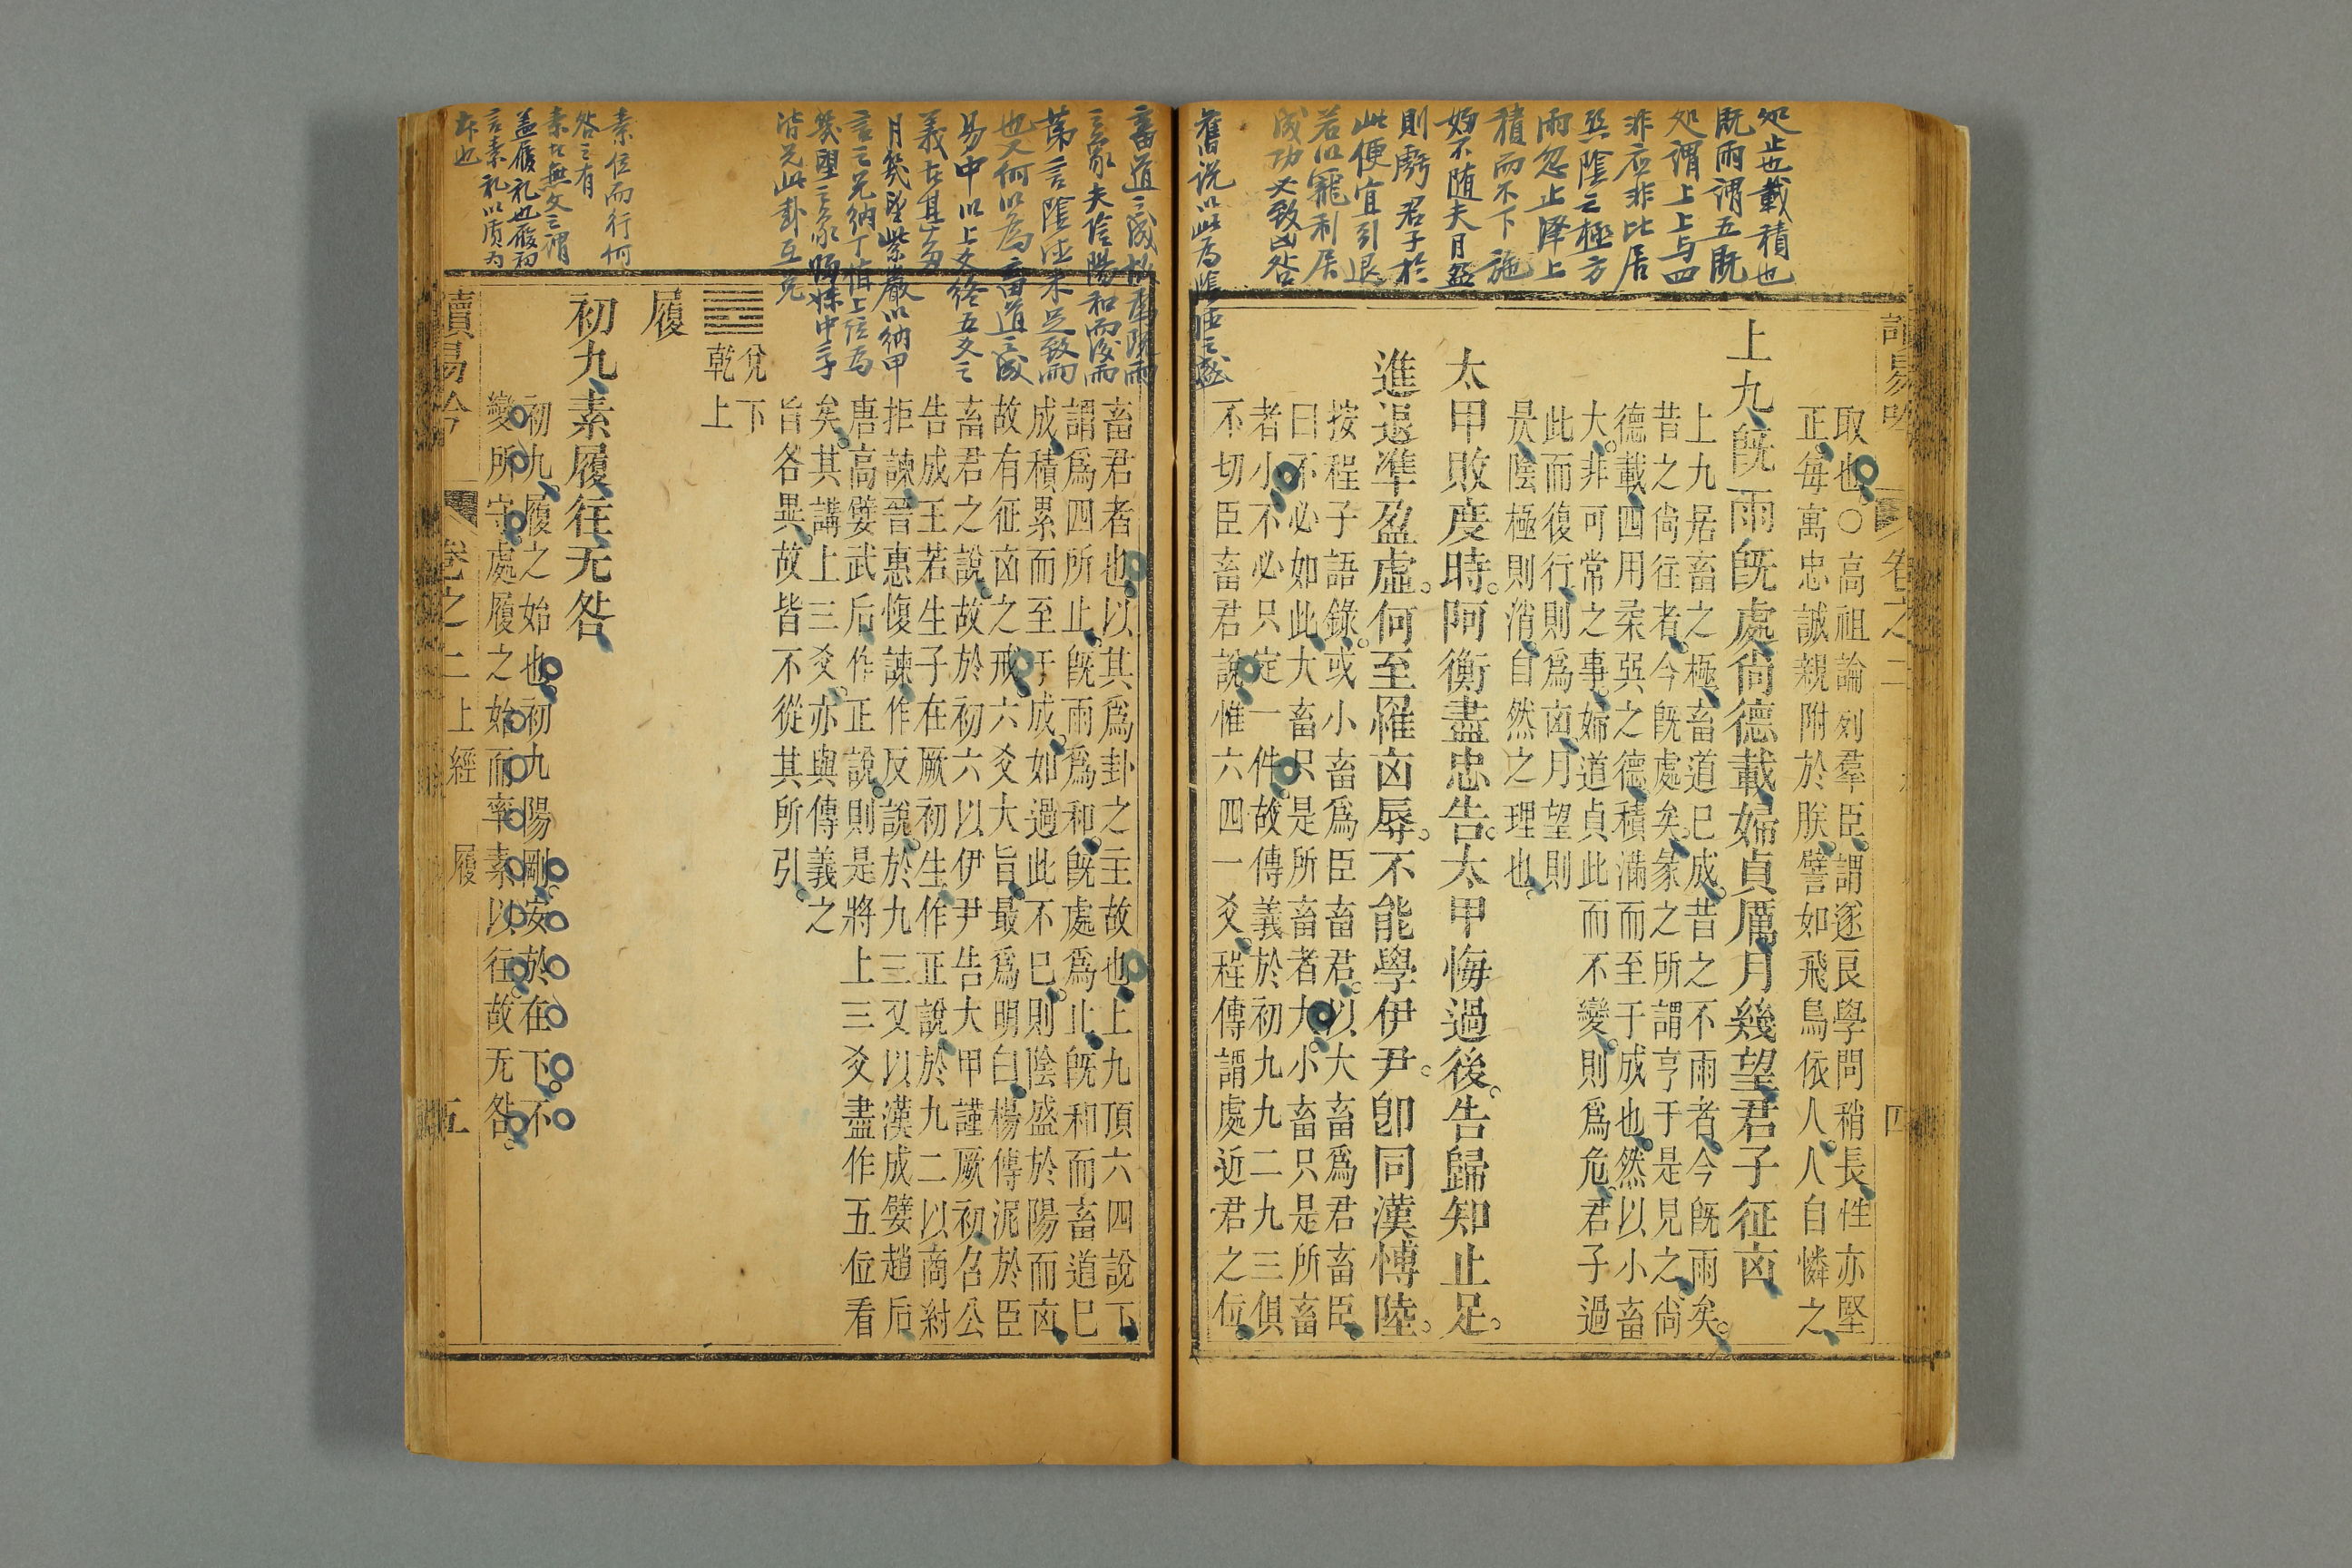 处止也載積也
既雨謂五既
处謂上上与四
非应非比居
巽陰之極方
雨忽止澤上
積而不下施
婦不随夫月盈
則虧君子於
此便宜引退
若以寵利居
成功必致凶咎
取也○高祖論列羣臣謂逐良學問稍長性亦堅
正每寓忠誠親附於朕譬如飛鳥依人人自憐之
上九旣雨旣處尙德載婦貞厲月幾望君子征㐫
上九居畜之極畜道已成昔之不雨者今旣雨矣
昔之尙往者今旣處矣彖之所謂亨于是見之尙
德載四用柔巽之德積滿而至于成也然以小畜
大非可常之事婦道貞此而不變則爲危君子過
此而復行則爲㐫月望則
是陰極則消自然之理也
太甲敗度時阿衡盡忠告太甲悔過後告歸知止足
進退準盈虛何至罹㐫辱不能學伊尹卽同漢博陸
按程子語錄或小畜爲臣畜君以大畜爲君畜臣
曰不必如此大畜只是所畜者大小畜只是所畜
者小不必只定一件故傳義於初九九二九三俱
不切臣畜君說惟六四一爻程傳謂處近君之位
卷之二
四
舊说以此为陰
畜君者也以其爲卦之主故也上九頂六四說下
謂爲四所止旣雨爲和旣處爲止旣和而畜道已
成積累而至于成如過此不已則陰盛於陽而㐫
故有征㐫之戒六爻大旨最爲明白楊傳泥於臣
畜君之說故於初六以伊尹告大甲謹厥初召公
告成王若生子在厥初生作正說於九二以商紂
拒諫晉惠愎諫作反說於九三又以漢成嬖趙后
唐高嬖武后作正說則是將上三爻盡作五位看
矣其講上三爻亦與傳義之
旨各異故皆不從其所引
䷉兌下
乾上
履
初九素履往无咎
初九履之始也初九陽剛安於在下不
變所守處履之始而率素以往故无咎
素位而行何
咎之有
素者無文之謂
盖履礼也履初
言素礼以质为
本也
讀易吟
卷之二上經
履
五